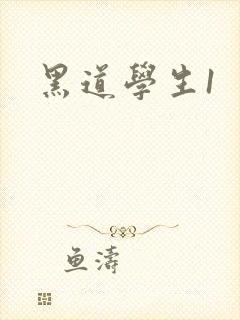 黑道學生1
魚濤